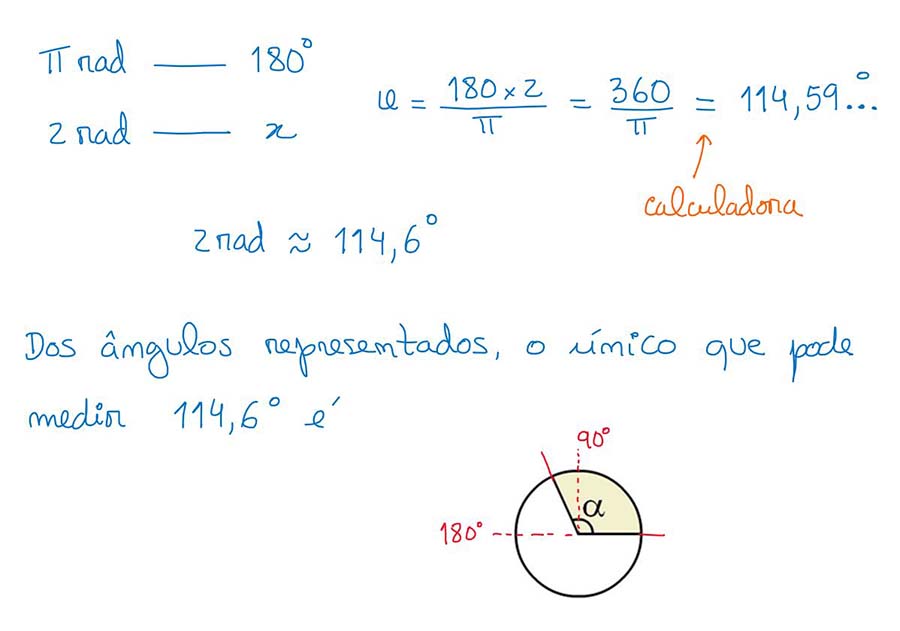 π rad —— 180°
2 rad —— x
x = 180 × 2 / π = 360 / π = 114,59...°
calculadora
2 rad ≈ 114,6°
Dos ângulos representados, o único que pode
medir 114,6° é
90°
α
180°